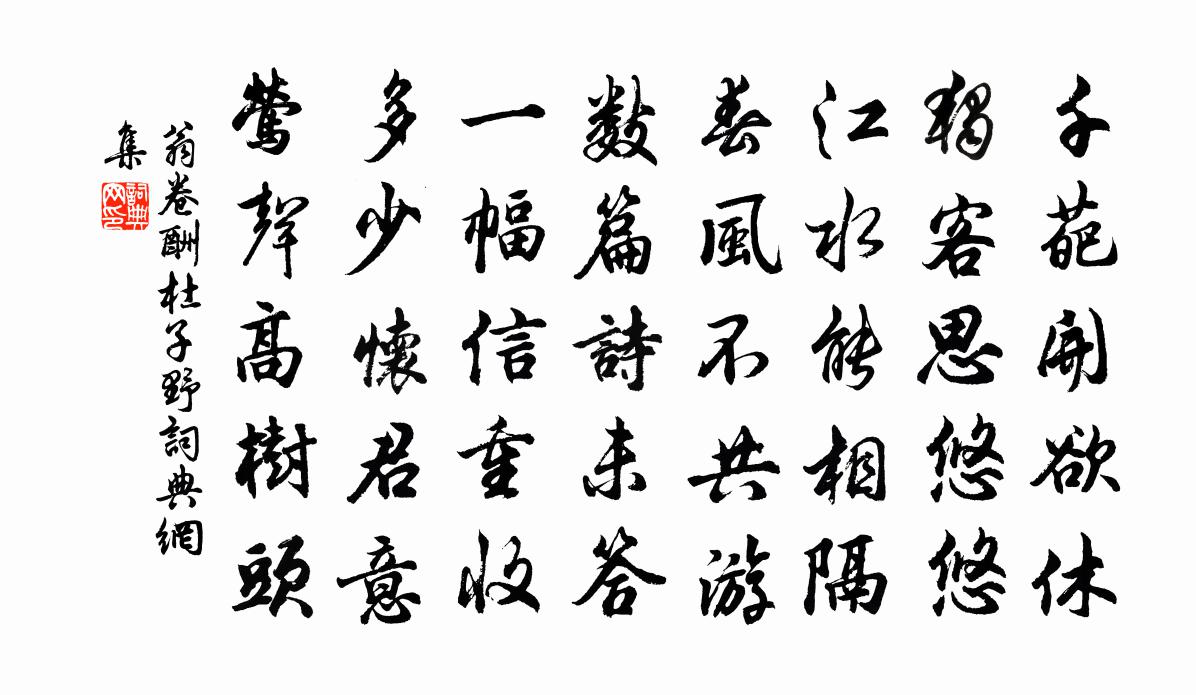 千葩開欲休
獨客思悠悠
江水能相隔
春風不共游
数篇詩未答
一幅信重收
多少懷君意
鶯聲高樹頭
翁卷酬杜子野詞典網
集
詞典
网印